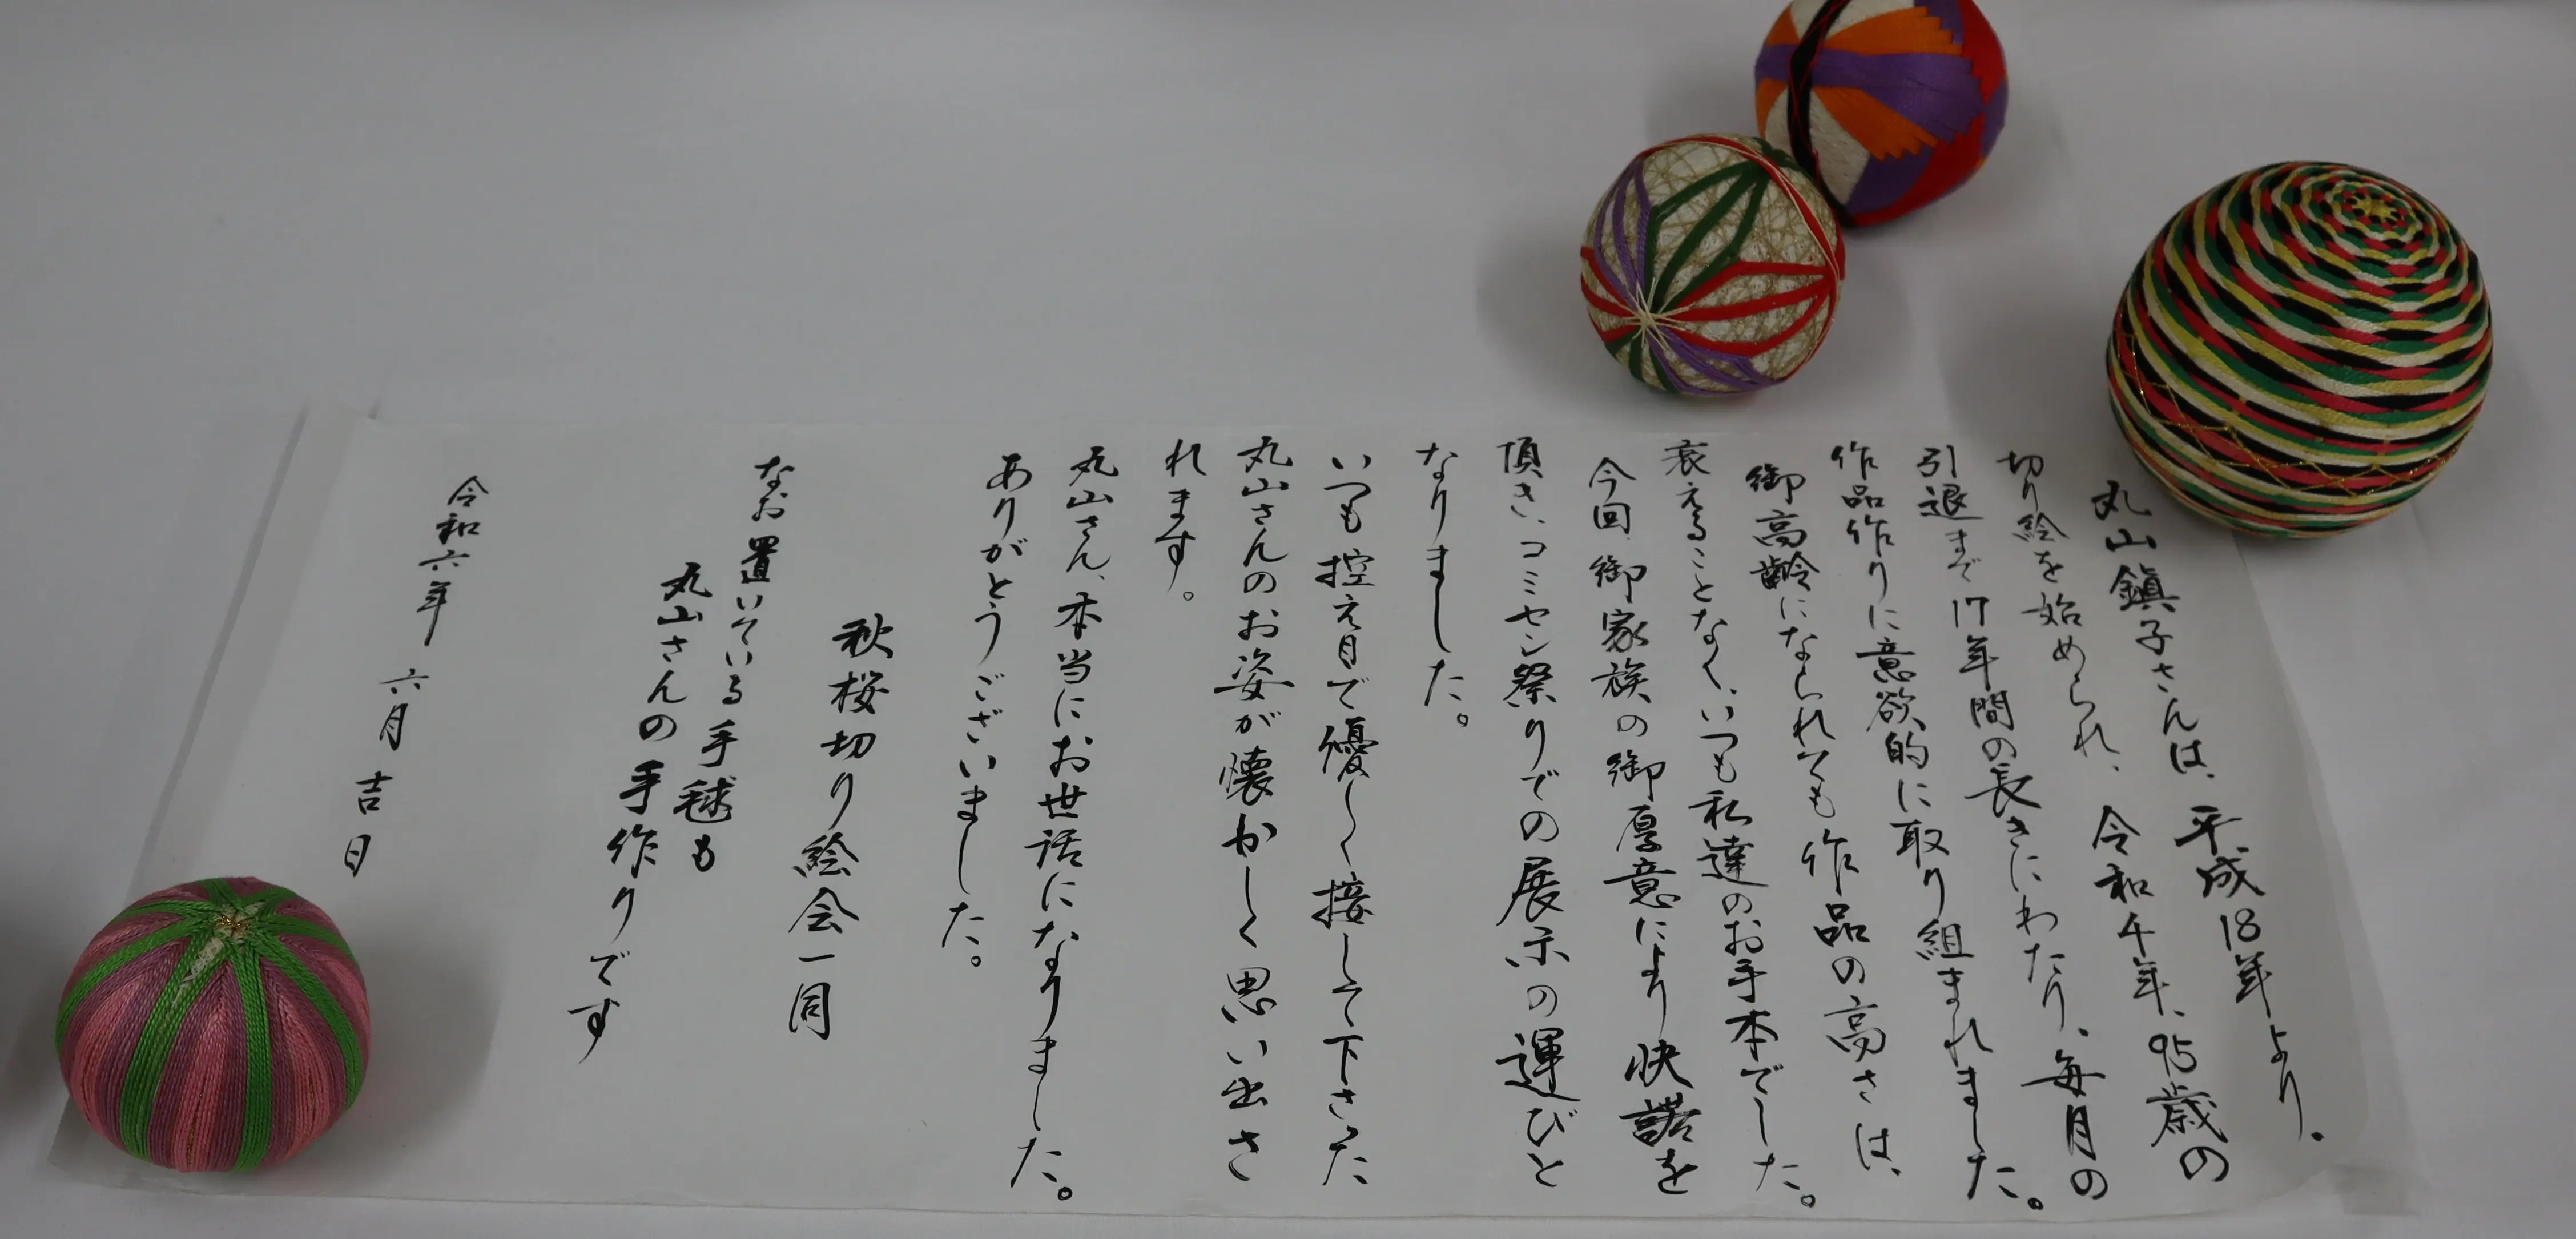 丸山鎭子さんは、平成18年より、
切り絵を始められ、令和4年、95歳の
引退まで17年間の長きにわたり、毎月の
作品作りに意欲的に取り組まれました。
御高齢になられても作品の高さは、
衰えることなく、いつも私達のお手本でした。
今回御家族の御厚意により快諾を
頂き、コミセン祭りでの展示の運びと
なりました。
いつも控え目で優しく接して下さった
丸山さんのお姿が懐かしく思い出さ
れます。
丸山さん、本当にお世話になりました。
ありがとうございました。
秋桜切り絵会一同
なお置いている手毬も
丸山さんの手作りです
令和六年 六月 吉日